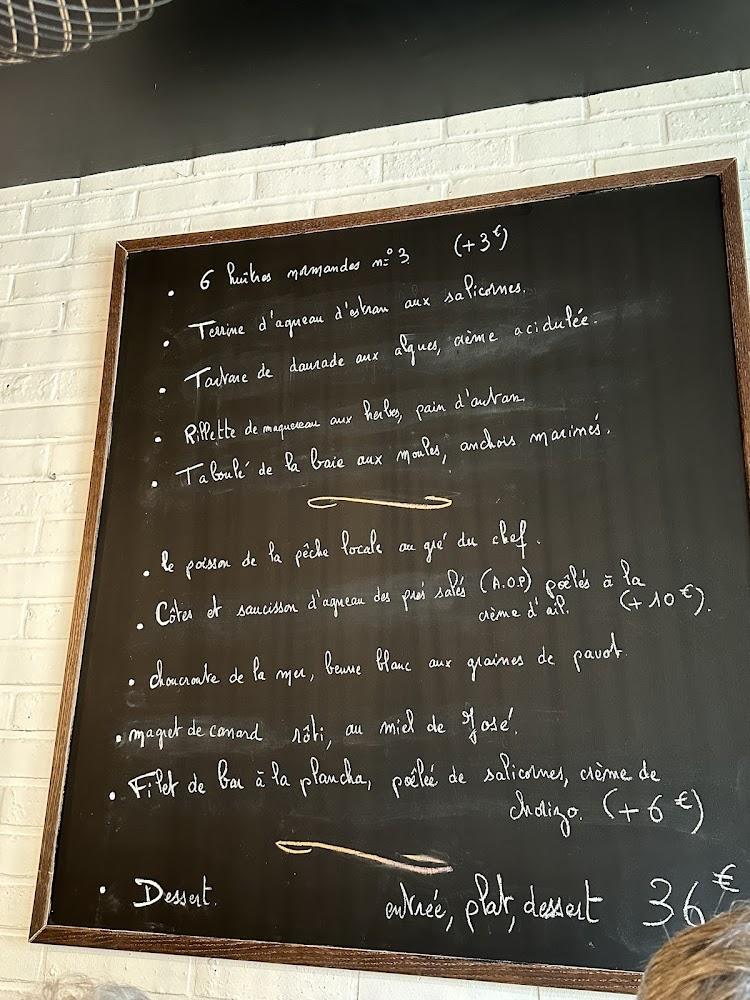 . 6 huîtres normandes n=° 3 (+3€)
. Terrine d'agneau d'estran aux salicornes.
. Tartare de daurade aux algues, crème acidulée.
. Rillette de maquereau aux herbes, pain d'antan
. Taboulé de la baie aux moules, anchois marinés.
. le poisson de la pêche locale au gré du chef.
. Côtes et saucisson d'agneau des prés salés (A.O.P) poêlés à la
crème d'ail. (+10€).
. choucroute de la mer, beurre blanc aux graines de pavot
. magret de canard rôti, au miel de José.
. Filet de bar à la plancha, poêlée de salicornes, crème de
chorizo. (+6€)
. Dessert.
entrée, plat, dessert 36€